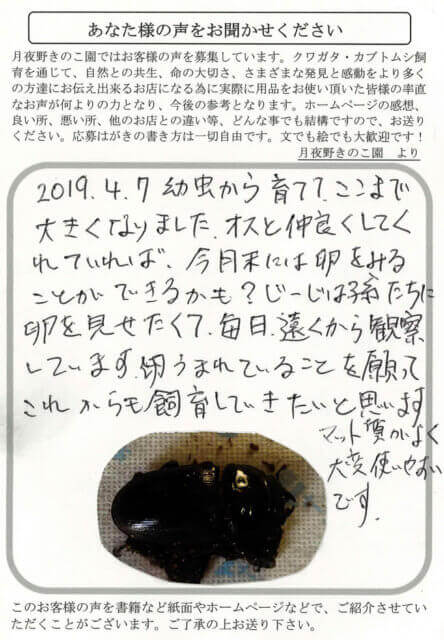 あなた様の声をお聞かせください
月夜野きのこ園ではお客様の声を募集しています。クワガタ・カブトムシ飼
育を通じて、自然との共生、命の大切さ、さまざまな発見と感動をより多く
の方達にお伝え出来るお店になる為に実際に用品をお使い頂いた皆様の率直
なお声が何よりの力となり、今後の参考となります。ホームページの感想、
良い所、悪い所、他のお店との違い等、どんな事でも結構ですので、お送り
ください。応募はがきの書き方は一切自由です。文でも絵でも大歓迎です！
月夜野きのこ園 より
2019.4.7 幼虫から育てて、ここまで
大きくなりました。オスと仲良くしてく
れていれば、今月末には卵をみる
ことができるかも？じーじは孫たちに
卵を見せたくて、毎日、遠くから観察
しています。卵うまれていることを願って
これからも飼育していきたいと思います
マット質がよく
大変使いやすい
です。
このお客様の声を書籍など紙面やホームページなどで、ご紹介させてい
ただくことがございます。ご了承の上お送り下さい。